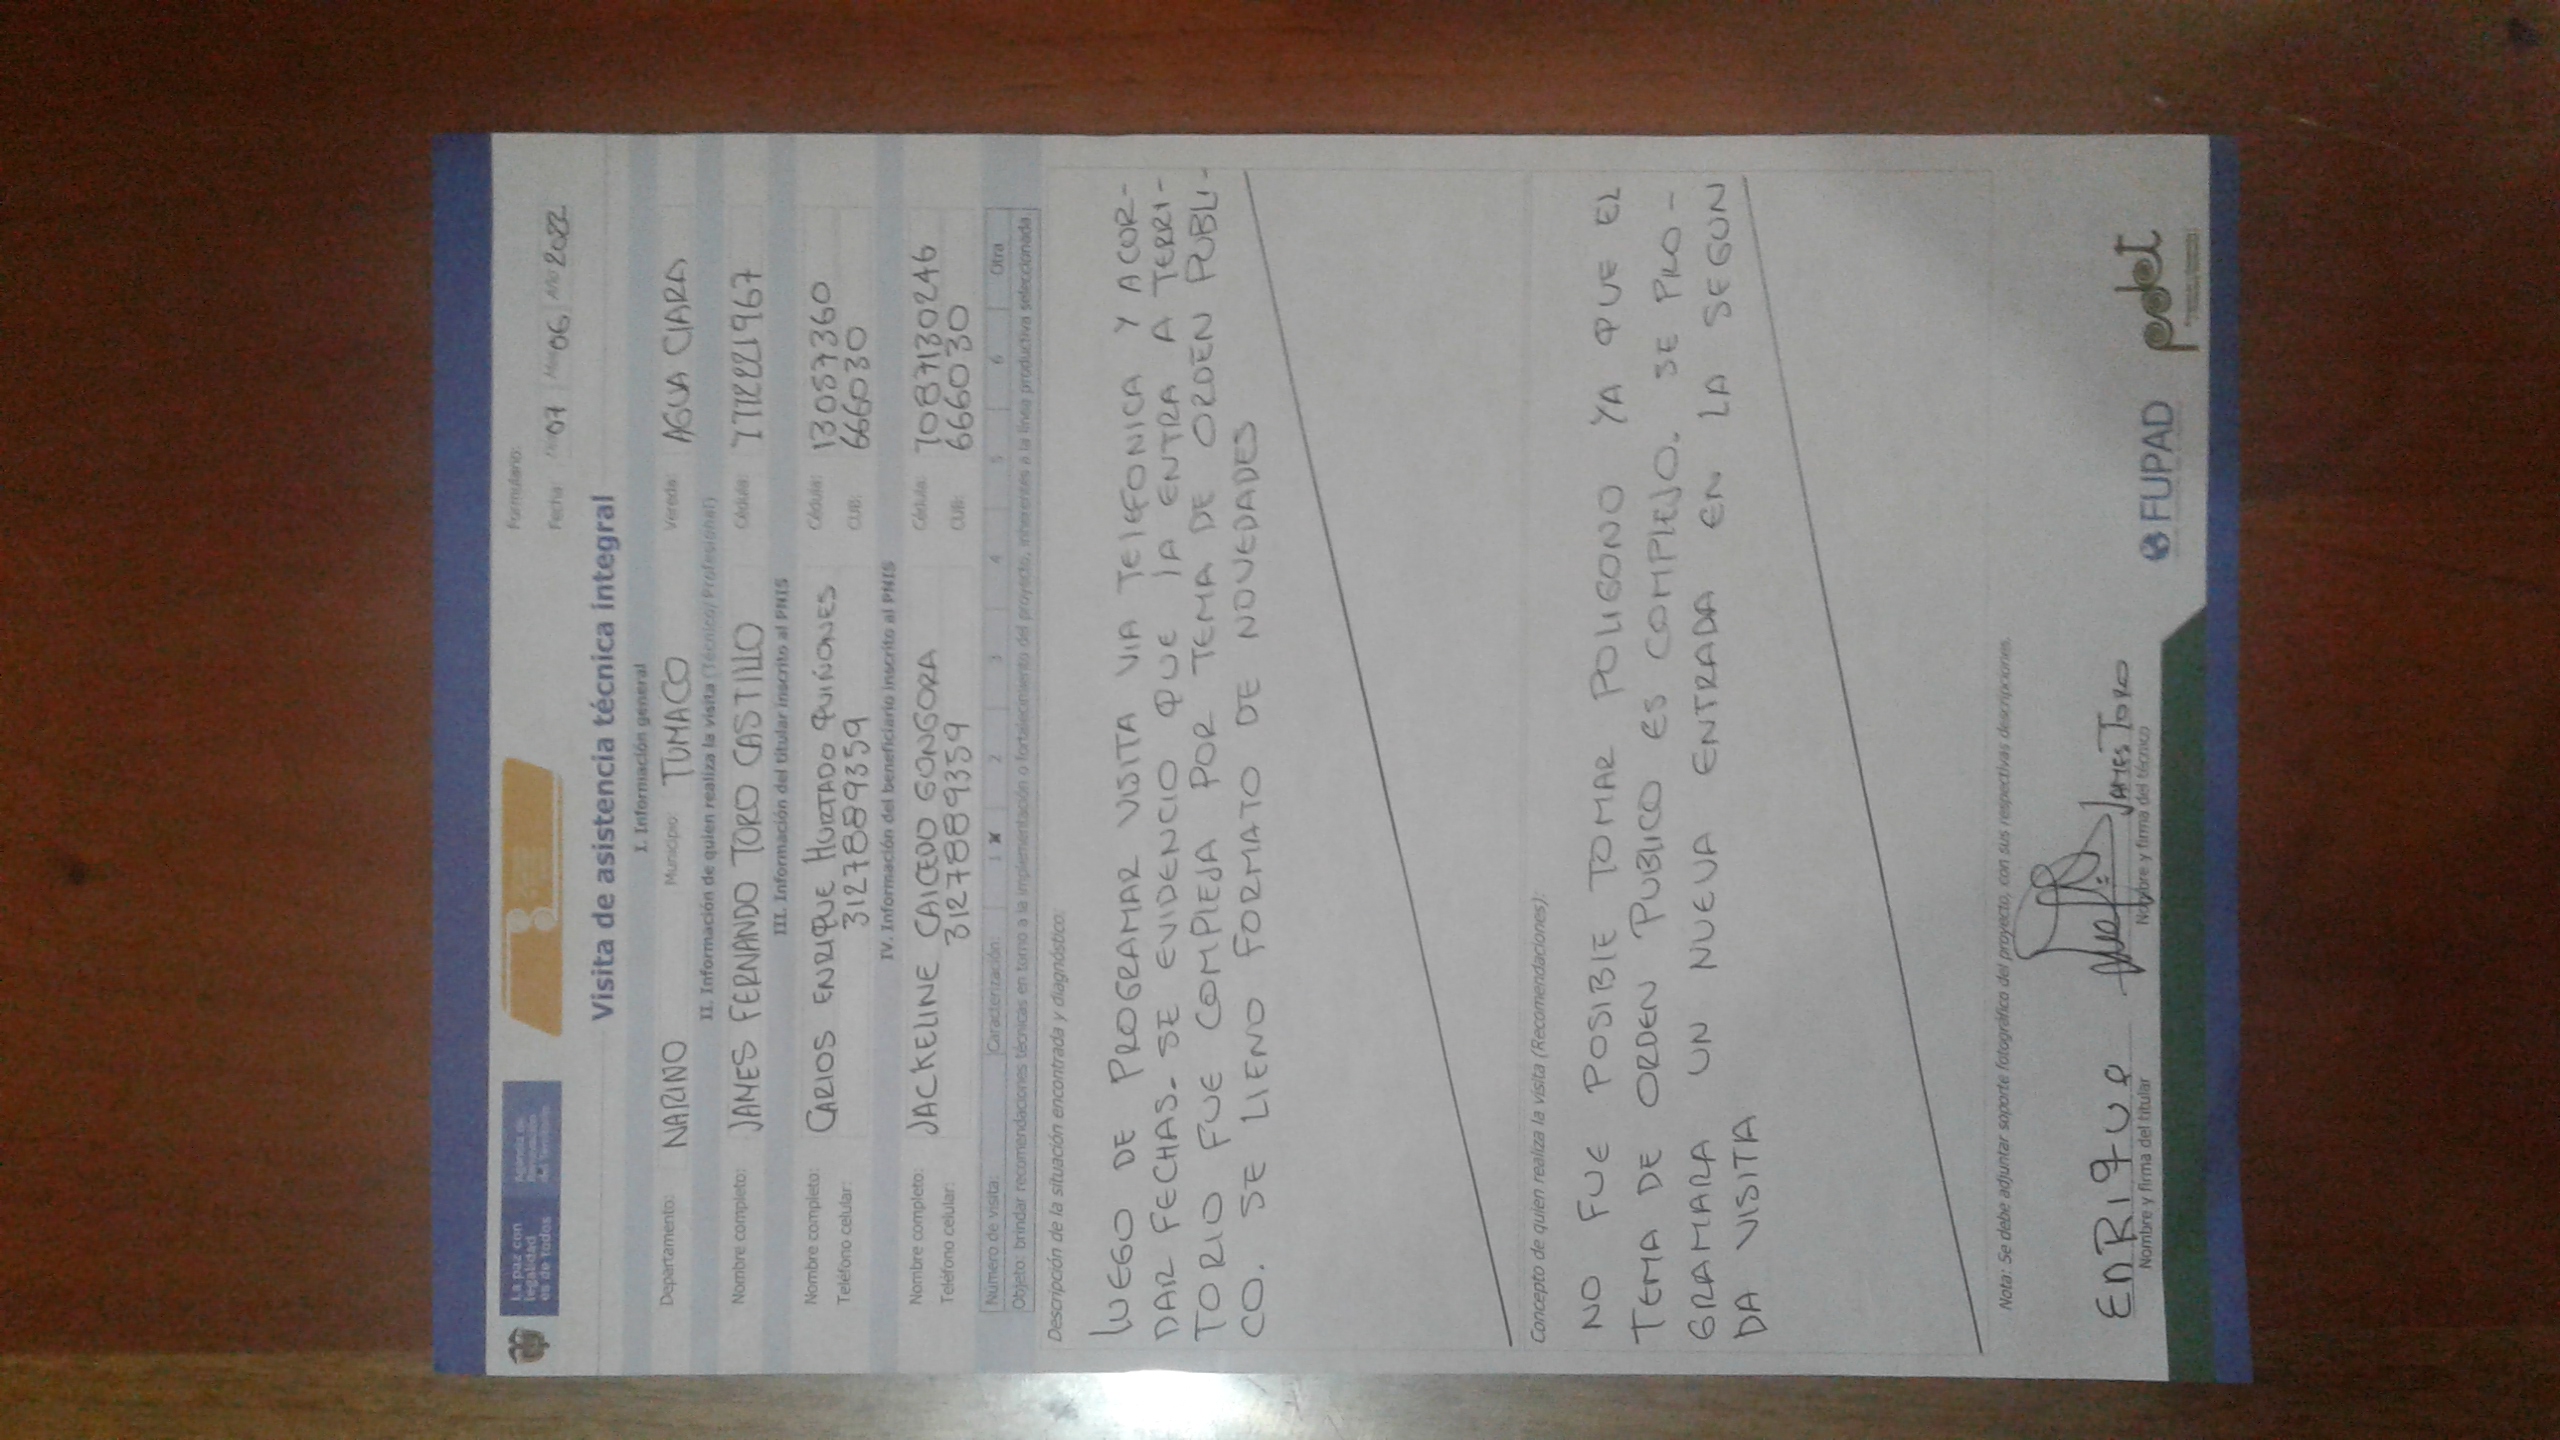 La paz con
legalidad
es de todos
Agencia de
Renovación
del Territorio
Formulario:
Fecha: 07 Mes 06 Año 2022
Visita de asistencia técnica integral
I. Información general
Departamento: NARIÑO Municipio: TUMACO Vereda: AGUA CIARA
II. Información de quien realiza la visita (Técnico/ Profesional)
Nombre completo: JAMES FERNANDO TORO CASTILLO Cédula:
III. Información del titular inscrito al PNIS
Nombre completo: CARIOS ENRIQUE HURTADO QUIÑONES Cédula: 13057360
Teléfono celular: 3127889359 CUB: 666030
IV. Información del beneficiario inscrito al PNIS
Nombre completo: JACKELINE CAICEDO GONGORA Cédula: 1087130246
Teléfono celular: 3127889359 CUB: 666030
Número de visita: Caracterización: 1 X 2 3 4 5 6 Otra
Objeto: brindar recomendaciones técnicas en torno a la implementación o fortalecimiento del proyecto, inherentes a la línea productiva seleccionada.
Descripción de la situación encontrada y diagnóstico:
LUEGO DE PROGRAMAR VISITA VIA TEIEFONICA Y ACOR-
DAR FECHAS. SE EVIDENCIO QUE IA ENTRA A TERRI-
TORIO FUE COMPIEJA POR TEMA DE ORDEN PUBLI-
CO. SE LIENO FORMATO DE NOVEDADES
Concepto de quien realiza la visita (Recomendaciones):
NO FUE POSIBIE TOMAR POLIGONO YA QUE EL
TEMA DE ORDEN PUBLICO ES COMPIEJO. SE PRO-
GRAMARA UN NUEVA ENTRADA EN LA SEGUN
DA VISITA
Nota: Se debe adjuntar soporte fotográfico del proyecto, con sus respectivas descripciones.
ENRIQUE JAMES TORO
Nombre y firma del titular Nombre y firma del técnico
FUPAD pdet